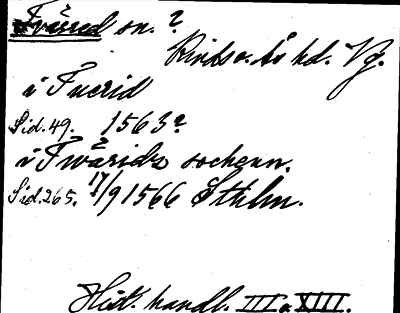 Tvärred sn. ?
Kinds o. Ås hd. Vg.
i Tuerid
Sid. 49. 1563?
i Twäridz sochenn.
Sid. 265. 17/9 1566 Sthlm.
Hist. handl. III o. XIII.